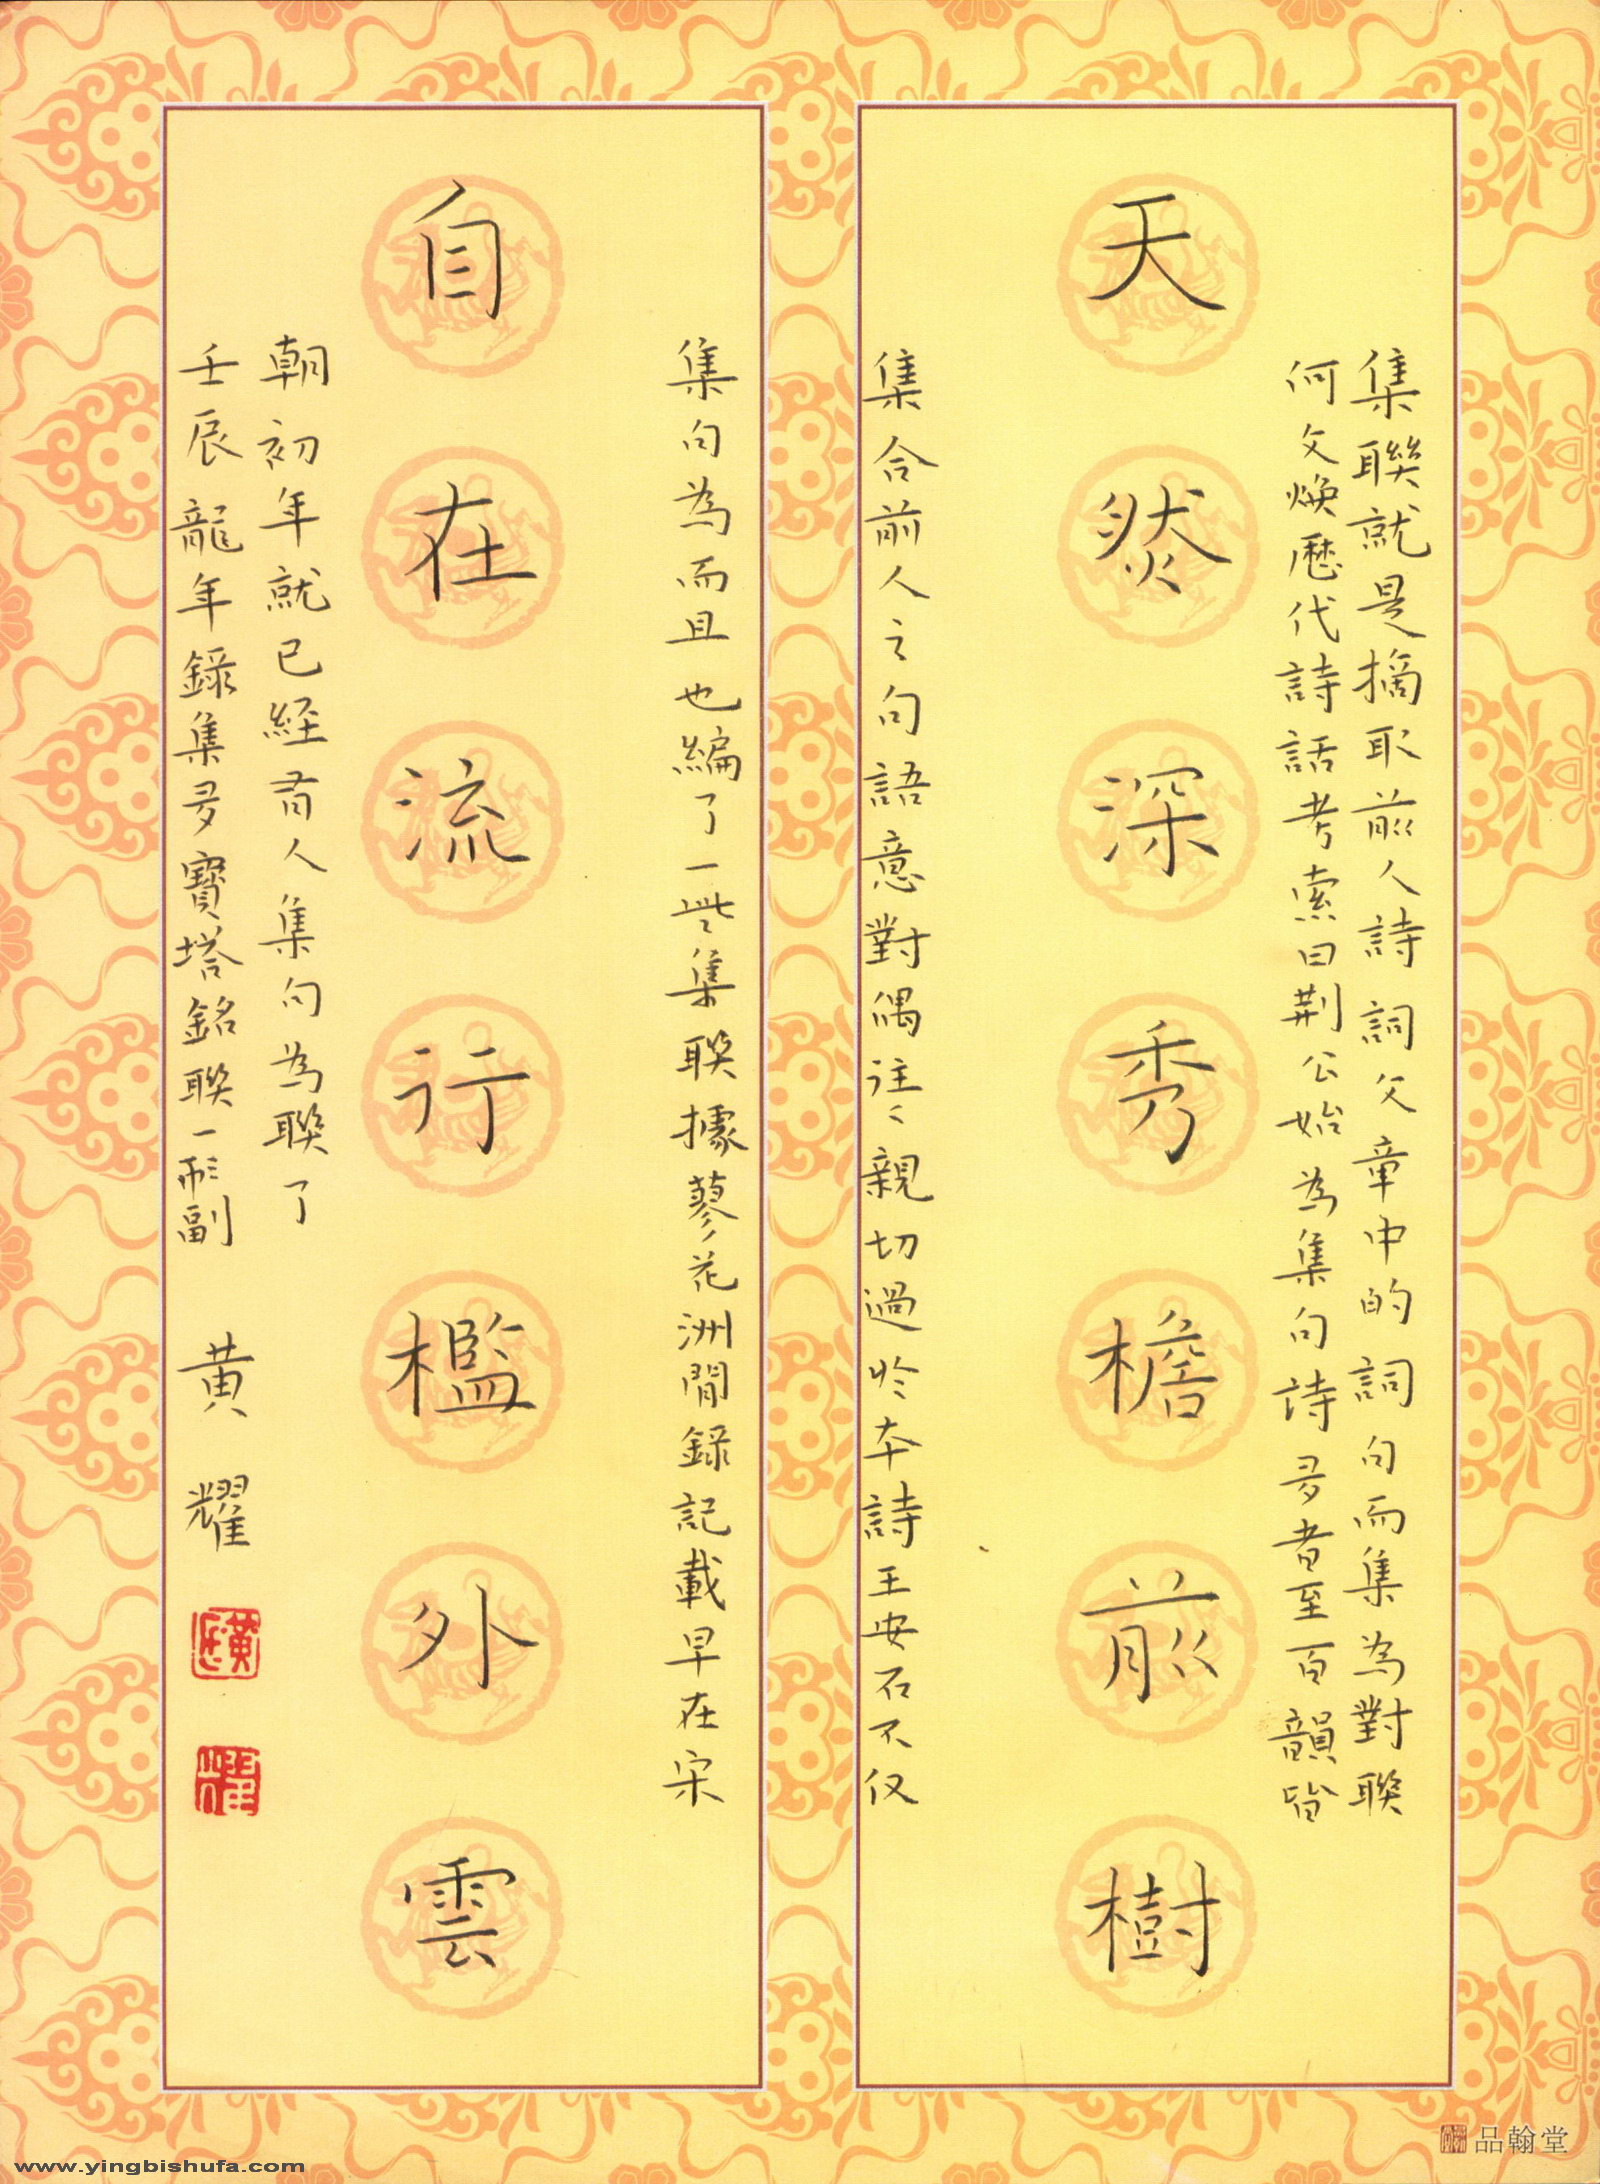 天然深秀檐前樹
集聯就是摘取前人詩詞文章中的詞句而集為對聯
何文煥歷代詩話考索曰荆公始為集句诗多者至百韻皆
集合前人之句語意對偶往〻親切過於本詩王安石不仅
自在流行檻外雲
集句為而且也編了一些集聯據蓼花洲閒録記載早在宋
朝初年就已經有人集句為聯了
壬辰龍年録集多寶塔銘聯一形副
黄耀
黃
耀
品翰堂
www.yingbishufa.com